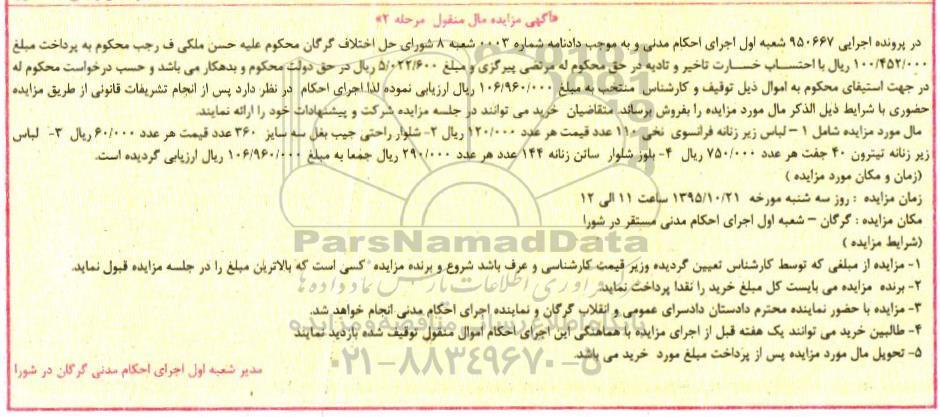 «آگهی مزایده مال منقول مرحله ۲»
در پرونده اجرایی ۹۵۰۶۶۷ شعبه اول اجرای احکام مدنی و به موجب دادنامه شماره ۰۰۰۳ شعبه ۸ شورای حل اختلاف گرگان محکوم علیه حسن ملکی ف رجب محکوم به پرداخت مبلغ
۱۰۰/۴۵۲/۰۰۰ ریال با احتساب خسارت تاخیر و تادیه در حق محکوم له مرتضی پیرگزی و مبلغ ۵/۰۲۲/۶۰۰ ریال در حق دولت محکوم و بدهکار می باشد و حسب درخواست محکوم له
در جهت استیفای محکوم به اموال ذیل توقیف و کارشناس منتخب به مبلغ ۱۰۶/۹۶۰/۰۰۰ ریال ارزیابی نموده لذا اجرای احکام در نظر دارد پس از انجام تشریفات قانونی از طریق مزایده
حضوری با شرایط ذیل الذکر مال مورد مزایده را بفروش برساند. متقاضیان خرید می توانند در جلسه مزایده شرکت و پیشنهادات خود را ارائه نمایند.
مال مورد مزایده شامل ۱ – لباس زیر زنانه فرانسوی نخی ۱۱۰ عدد قیمت هر عدد ۱۲۰/۰۰۰ ریال ۲- شلوار راحتی جیب بغل سه سایز ۳۶۰ عدد قیمت هر عدد ۶۰/۰۰۰ ریال ۳- لباس
زیر زنانه تیترون ۴۰ جفت هر عدد ۷۵۰/۰۰۰ ریال ۴- بلوز شلوار ساتن زنانه ۱۴۴ عدد هر عدد ۲۹۰/۰۰۰ ریال جمعا به مبلغ ۱۰۶/۹۶۰/۰۰۰ ریال ارزیابی گردیده است.
(زمان و مکان مورد مزایده )
زمان مزایده : روز سه شنبه مورخه ۱۳۹۵/۱۰/۲۱ ساعت ۱۱ الی ۱۲
مکان مزایده : گرگان – شعبه اول اجرای احکام مدنی مستقر در شورا
ParsNamadData
(شرایط مزایده )
۱- مزایده از مبلغی که توسط کارشناس تعیین گردیده وزیر قیمت کارشناسی و عرف باشد شروع و برنده مزایده کسی است که بالاترین مبلغ را در جلسه مزایده قبول نماید.
۲- برنده مزایده می بایست کل مبلغ خرید را نقدا پرداخت نماید.
۳- مزایده با حضور نماینده محترم دادستان دادسرای عمومی و انقلاب گرگان و نماینده اجرای احکام مدنی انجام خواهد شد.
۴- طالبین خرید می توانند یک هفته قبل از اجرای مزایده با هماهنگی این اجرای احکام اموال منقول توقیف شده بازدید نمایند
۵- تحویل مال مورد مزایده پس از پرداخت مبلغ مورد خرید می باشد.
۰۲۱-۸۸۳۴۹۶۷۰-۵
مدیر شعبه اول اجرای احکام مدنی گرگان در شورا